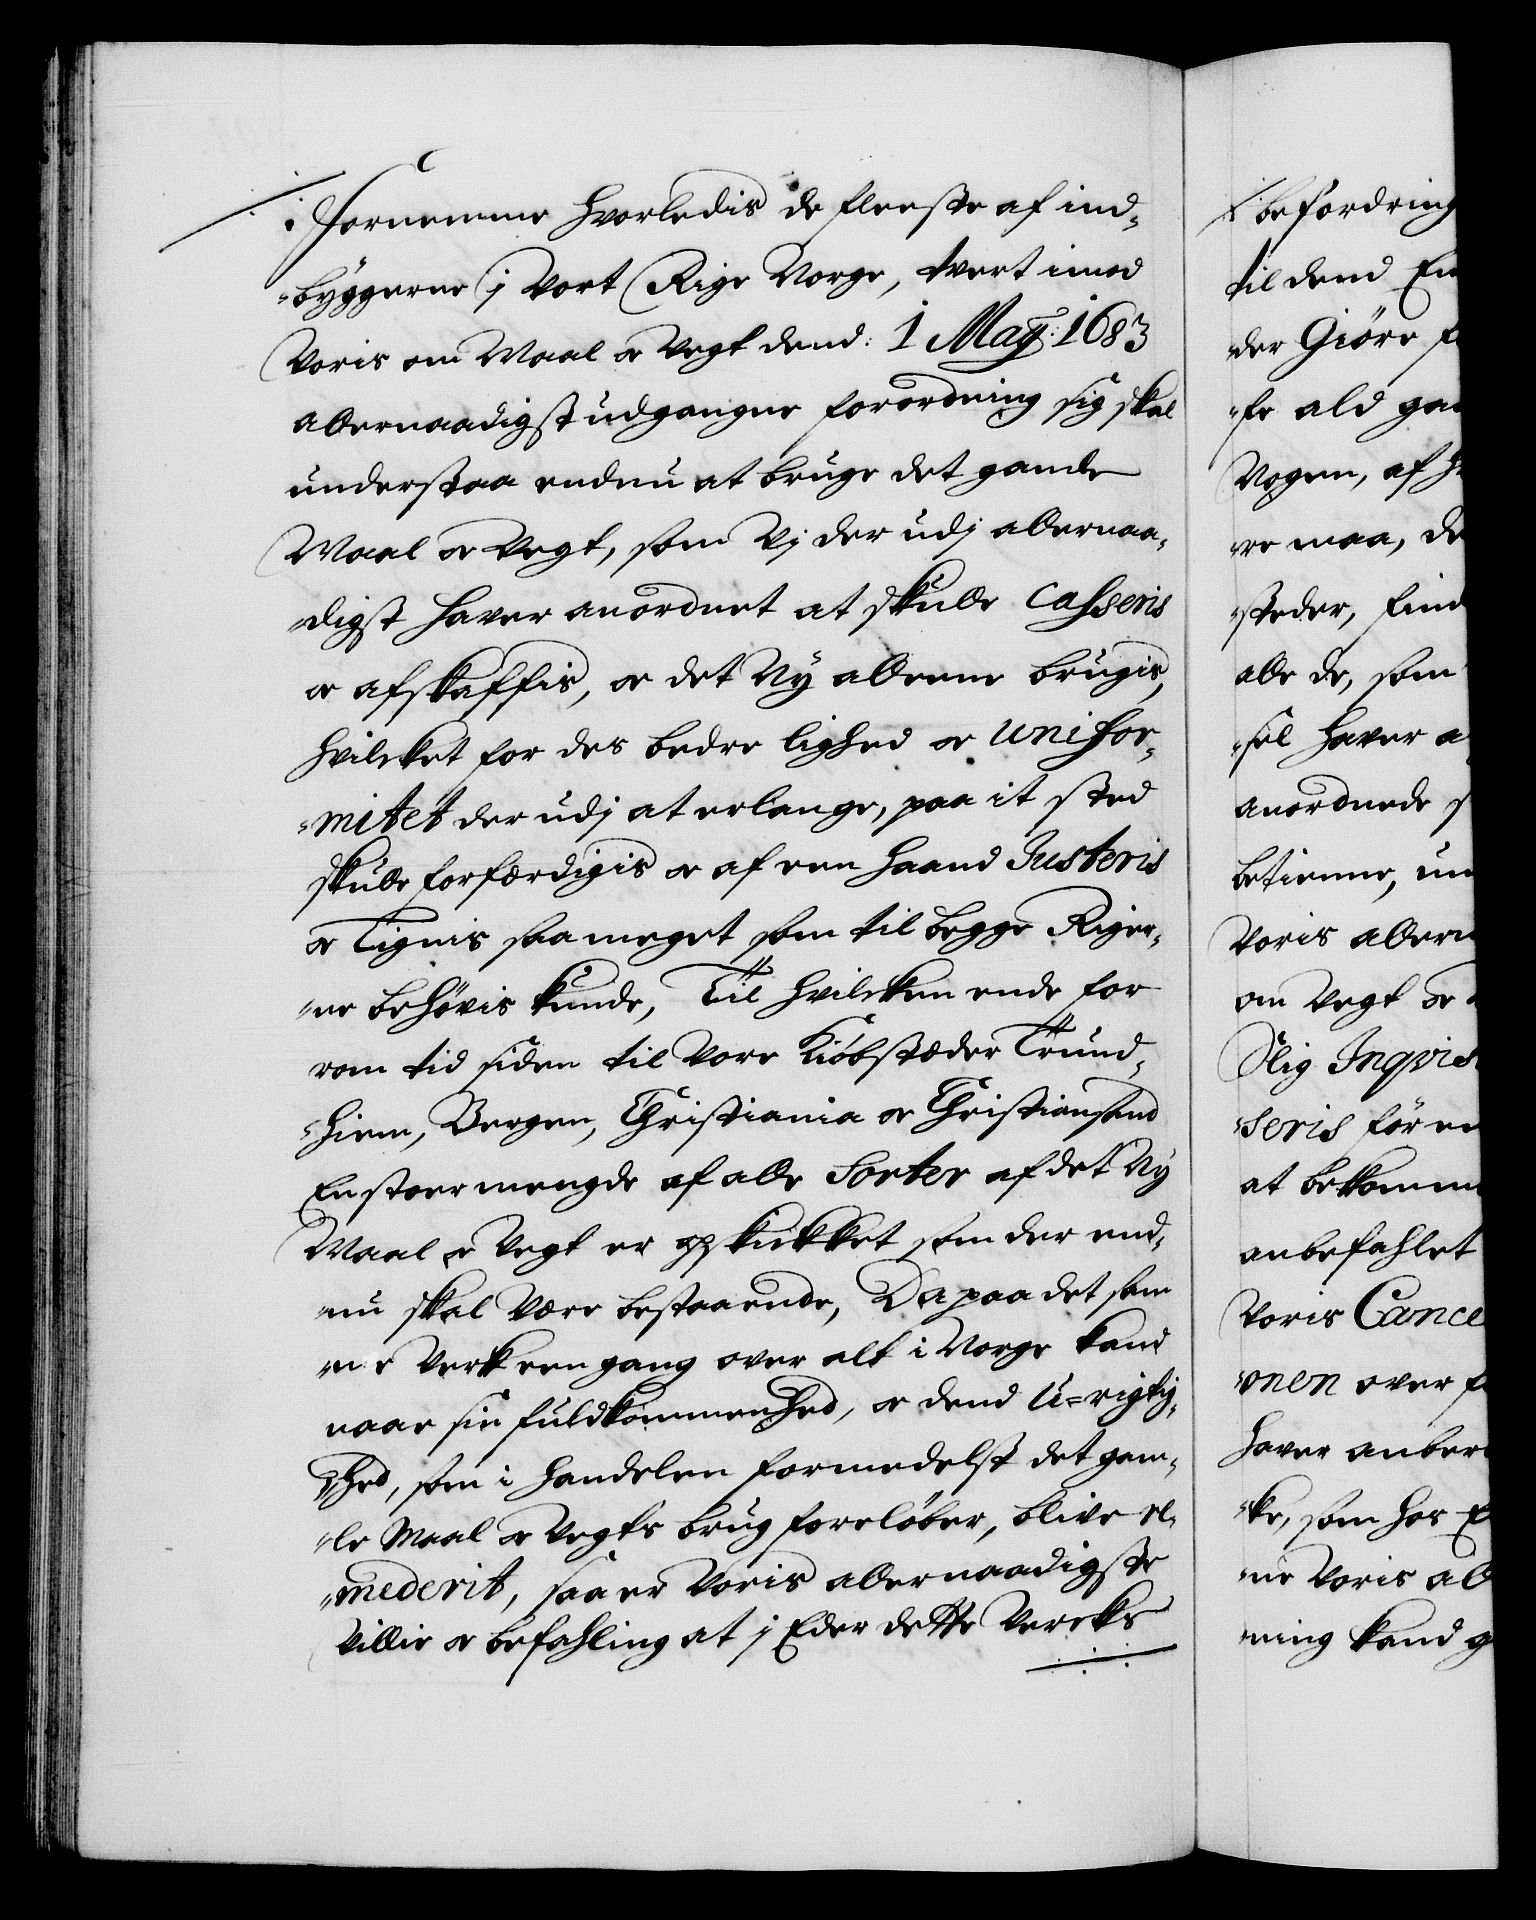 fornemme hvorledis de fleeste af ind-
-byggerne j vort Rige Norge, tvert imod
Voris om Maal oc Vegt dend: 1 Maÿ: 1683
allernaadigst udgangne forordning sig skal
understaa endnu at bruge det gamle
Maal oc Vegt, som Vj der udj allernaa-
-digst haver anordnet at skulle Casseris
oc afskaffis, oc det Ny alleene brugis,
hvilcket for des bedre lighed oc Unifor-
-mitet der udj at erlange, paa it sted
skulle forfærdigis oc af een haand Justeris
oc Tignis saa meget som til begge Riger-
-ne behøvis kunde, Til hvilcken ende for
rom tid siden til Vore Kiöbstæder Trund-
-hiem, Bergen, Christiania oc Christiansand
En stoer mengde af alle Sorter af det Ny
Maal oc Vegt er opskikket som der end-
-nu skal være bestaaende, Da paa det sam
-me Verk een gang over alt i Norge kand
naae sin fuldkommenhed, oc dend U-rigtig-
-hed, som i handelen formedelst det gam-
-le Maal oc Vegts brug foreløber, blive re-
-mederit, saa er Voris allernaadigste
Villie oc befahling at j Eder dette Vercks
befordring
til dend
der Giöre
-fe ald
Vogen, af
-re maa,
-steder,
alle de, som
-sel haver
anordnede
betienne,
Voris
om Vegt oc
Slig
-seris før
at
anbefahlet
Voris
-nen over
haver
-ke, som hos
-ne Voris
-ning kand